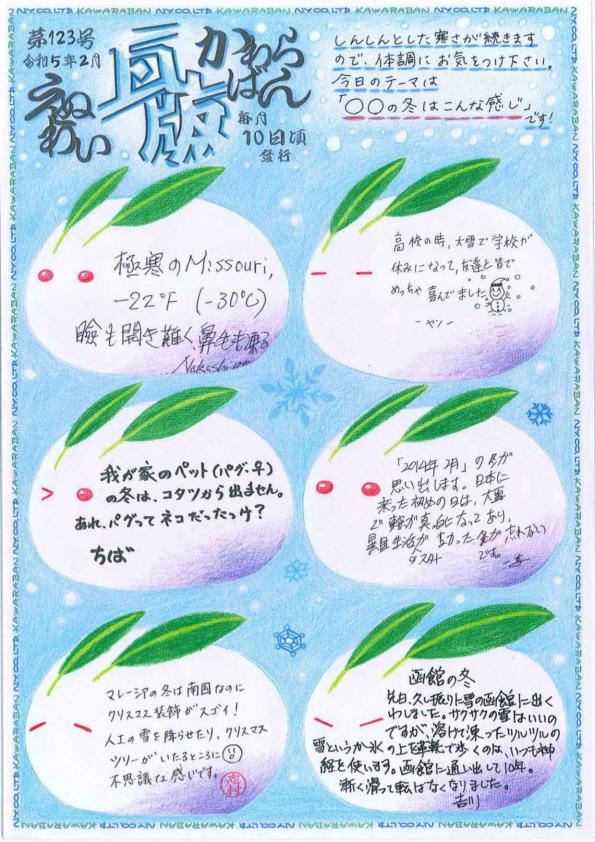 第123号
令和5年2月
えぬ
わい
瓦版
かわら
ばん
毎月
10日頃
發行
しんしんとした寒さが続きます
ので、体調にお気をつけ下さい。
今日のテーマは
「○○の冬はこんな感じ」
です!
極寒のMissouri,
-22°F (-30℃)
瞼も開き難く鼻毛も凍る
高校の時、大雪で学校が
休みになって、友達と皆で
めっちゃ喜んでました
-ヤン-
我が家のペット(パグ・♀)
の冬は、コタツから出ません。
あれ、パグってネコだったっけ?
ちば
「2014年2月」の冬が
思い出します。日本に
来った初めの日は、大雪
で
が真白になってあり、
生活が
た
が忘れない
です。
マレーシアの冬は南国なのに
クリスマス装飾がスゴイ!
人工の雪を降らせたり、クリスマス
ツリーがいたるところに
不思議な感じです。
志村
函館の冬
先日、久し振りに雪の函館に出く
わしました。サクサクの雪はいいの
ですが、溶けて凍ったツルツルの
雪というか氷の上を革靴で歩くのは、いつも神
経を使います。函館に通い出して10年。
漸く滑って転ばなくなりました。
吉川
N.Y.CO.,LTD KAWARABAN